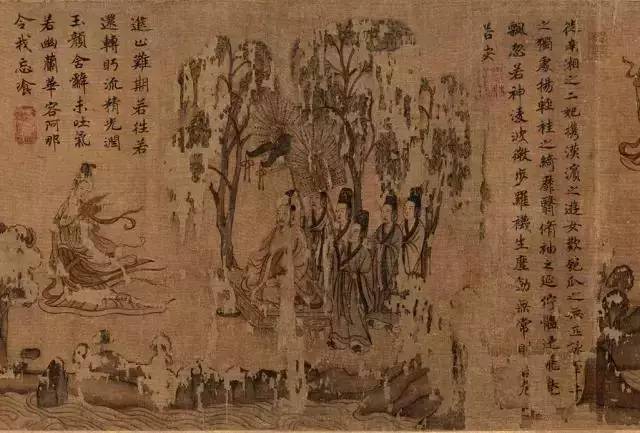 從南湘之二妃攜漢濱之遊女歎匏瓜之無匹詠
之獨處揚輕袿之綺靡翳脩袖之延佇體迅飛鳧
飄忽若神凌波微步羅襪生塵動無常則若危
若安
進止難期若往若
還轉眄流精光潤
玉顏含辭未吐氣
若幽蘭華容阿那
令我忘飡